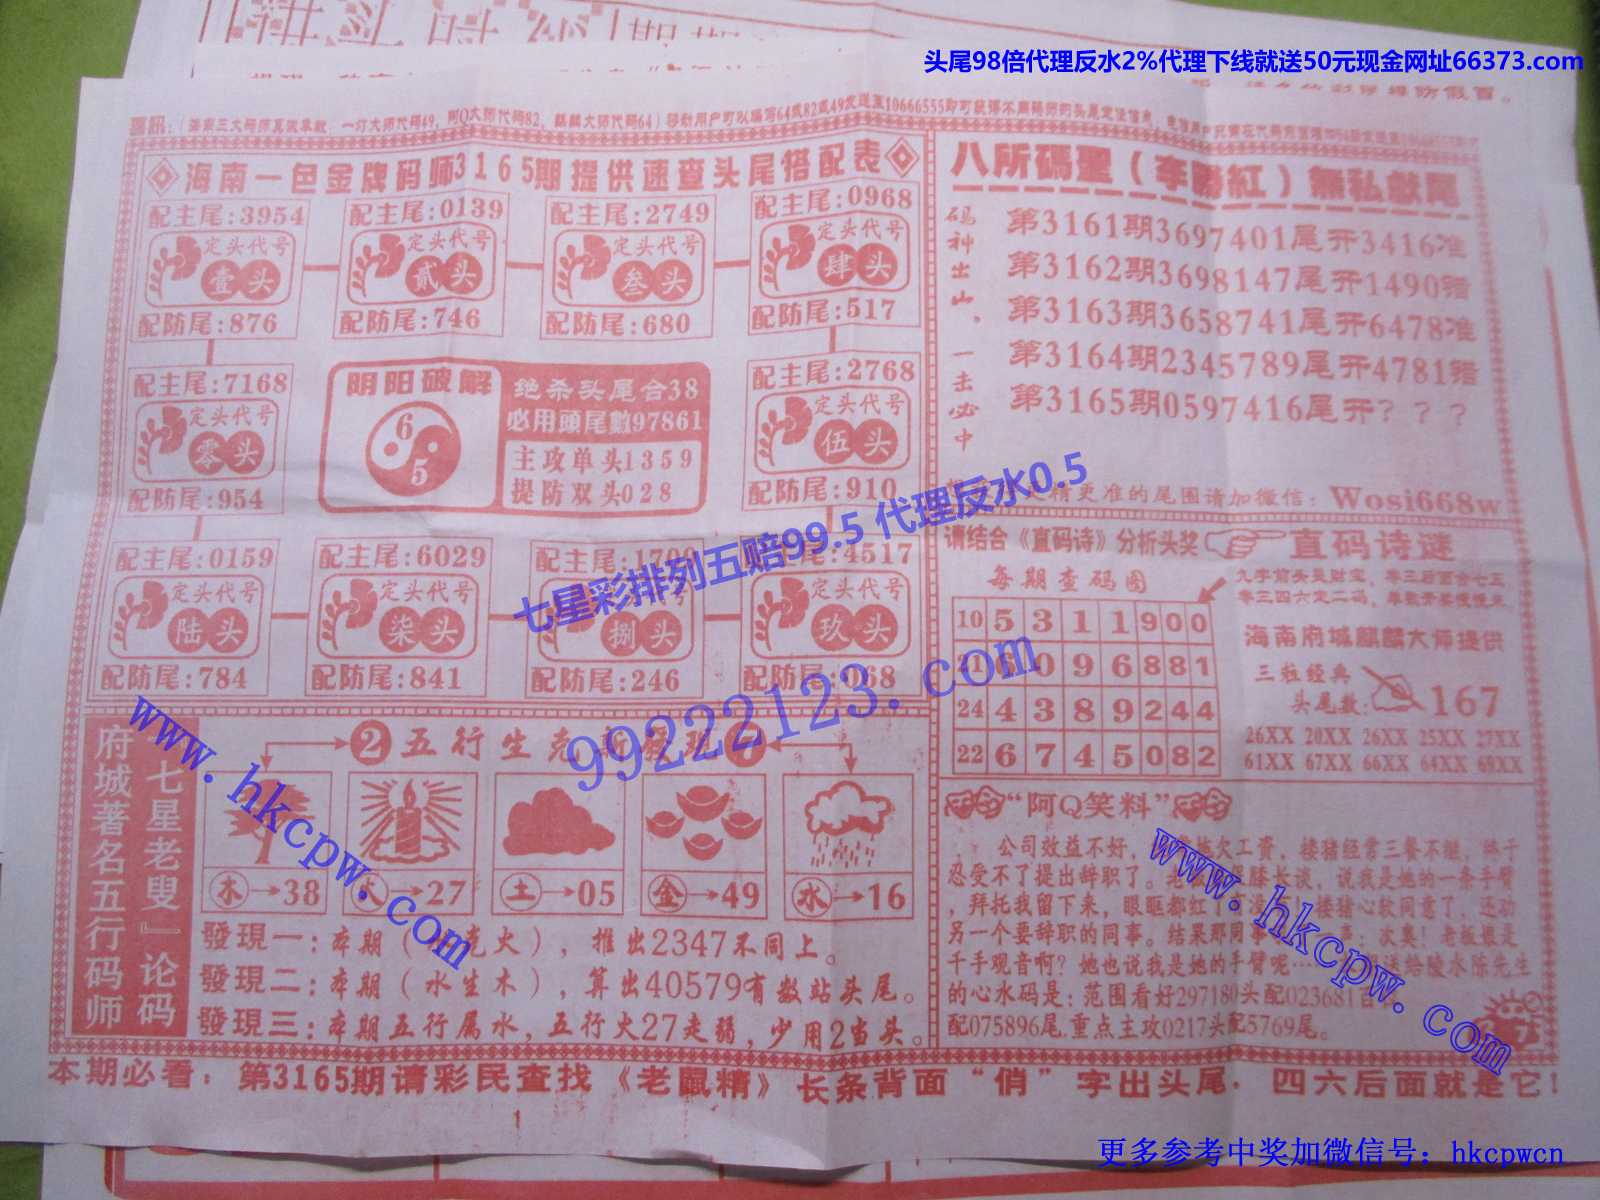 头尾98倍代理反水2%代理下线就送50元现金网址66373.com
海南一色金牌码师3165期提供速查头尾搭配表
配主尾:3954
定头代号
壹头
配防尾:876
配主尾:0139
定头代号
贰头
配防尾:746
配主尾:2749
定头代号
叁头
配防尾:680
配主尾:0968
定头代号
肆头
配防尾:517
配主尾:7168
定头代号
零头
配防尾:954
阴阳破解
6
5
绝杀头尾合38
必用頭尾數97861
主攻单头1359
提防双头028
配主尾:2768
定头代号
伍头
配防尾:910
配主尾:0159
定头代号
陆头
配防尾:784
配主尾:6029
定头代号
柒头
配防尾:841
定头代号
捌头
配防尾:246
4517
定头代号
玖头
配防尾:068
八所碼聖(李勝紅)無私献尾
码神出山，一击必中
第3161期3697401尾开3416准
第3162期3698147尾开1490错
第3163期3658741尾开6478准
第3164期2345789尾开4781错
第3165期0597416尾开???
精更准的尾围请加微信: Wosi668w
请结合《直码诗》分析头奖
直码诗谜
每期查码图
10 5 3 1 1 9 0 0
21 6 0 9 6 8 8 1
24 4 3 8 9 2 4 4
22 6 7 4 5 0 8 2
海南府城麒麟大师提供
三粒经典
头尾数: 167
26XX 20XX 26XX 25XX 27XX
61XX 67XX 66XX 64XX 69XX
府城著名五行码师
『七星老叟』论码
2 五行生克
木→38
火→27
土→05
金→49
水→16
發現一:本期( 克火), 推出2347不同上。
發現二:本期(水生木), 算出40579有数站头尾。
發現三:本期五行属水, 五行火27走弱, 少用2当头。
“阿Q笑料”
公司效益不好, 欠工资, 楼猪经常三餐不继, 终于
忍受不了提出辞职了。老 膝长谈, 说我是她的一条手臂
, 拜托我留下来, 眼眶都红了 楼猪心软同意了, 还劝
另一个要辞职的同事。结果那同事 : 次奥! 老板娘是
千手观音啊? 她也说我是她的手臂呢…… 送给陵水陈先生
的心水码是: 范围看好297180头配023681
配075896尾,重点主攻0217头配5769尾。
本期必看: 第3165期请彩民查找《老鼠精》长条背面“俏”字出头尾. 四六后面就是它!
1
七星彩排列五赔99.5 代理反水0.5
99222123.com
www.hkcpw.com
www.hkcpw.com
更多参考中奖加微信号: hkcpwcn